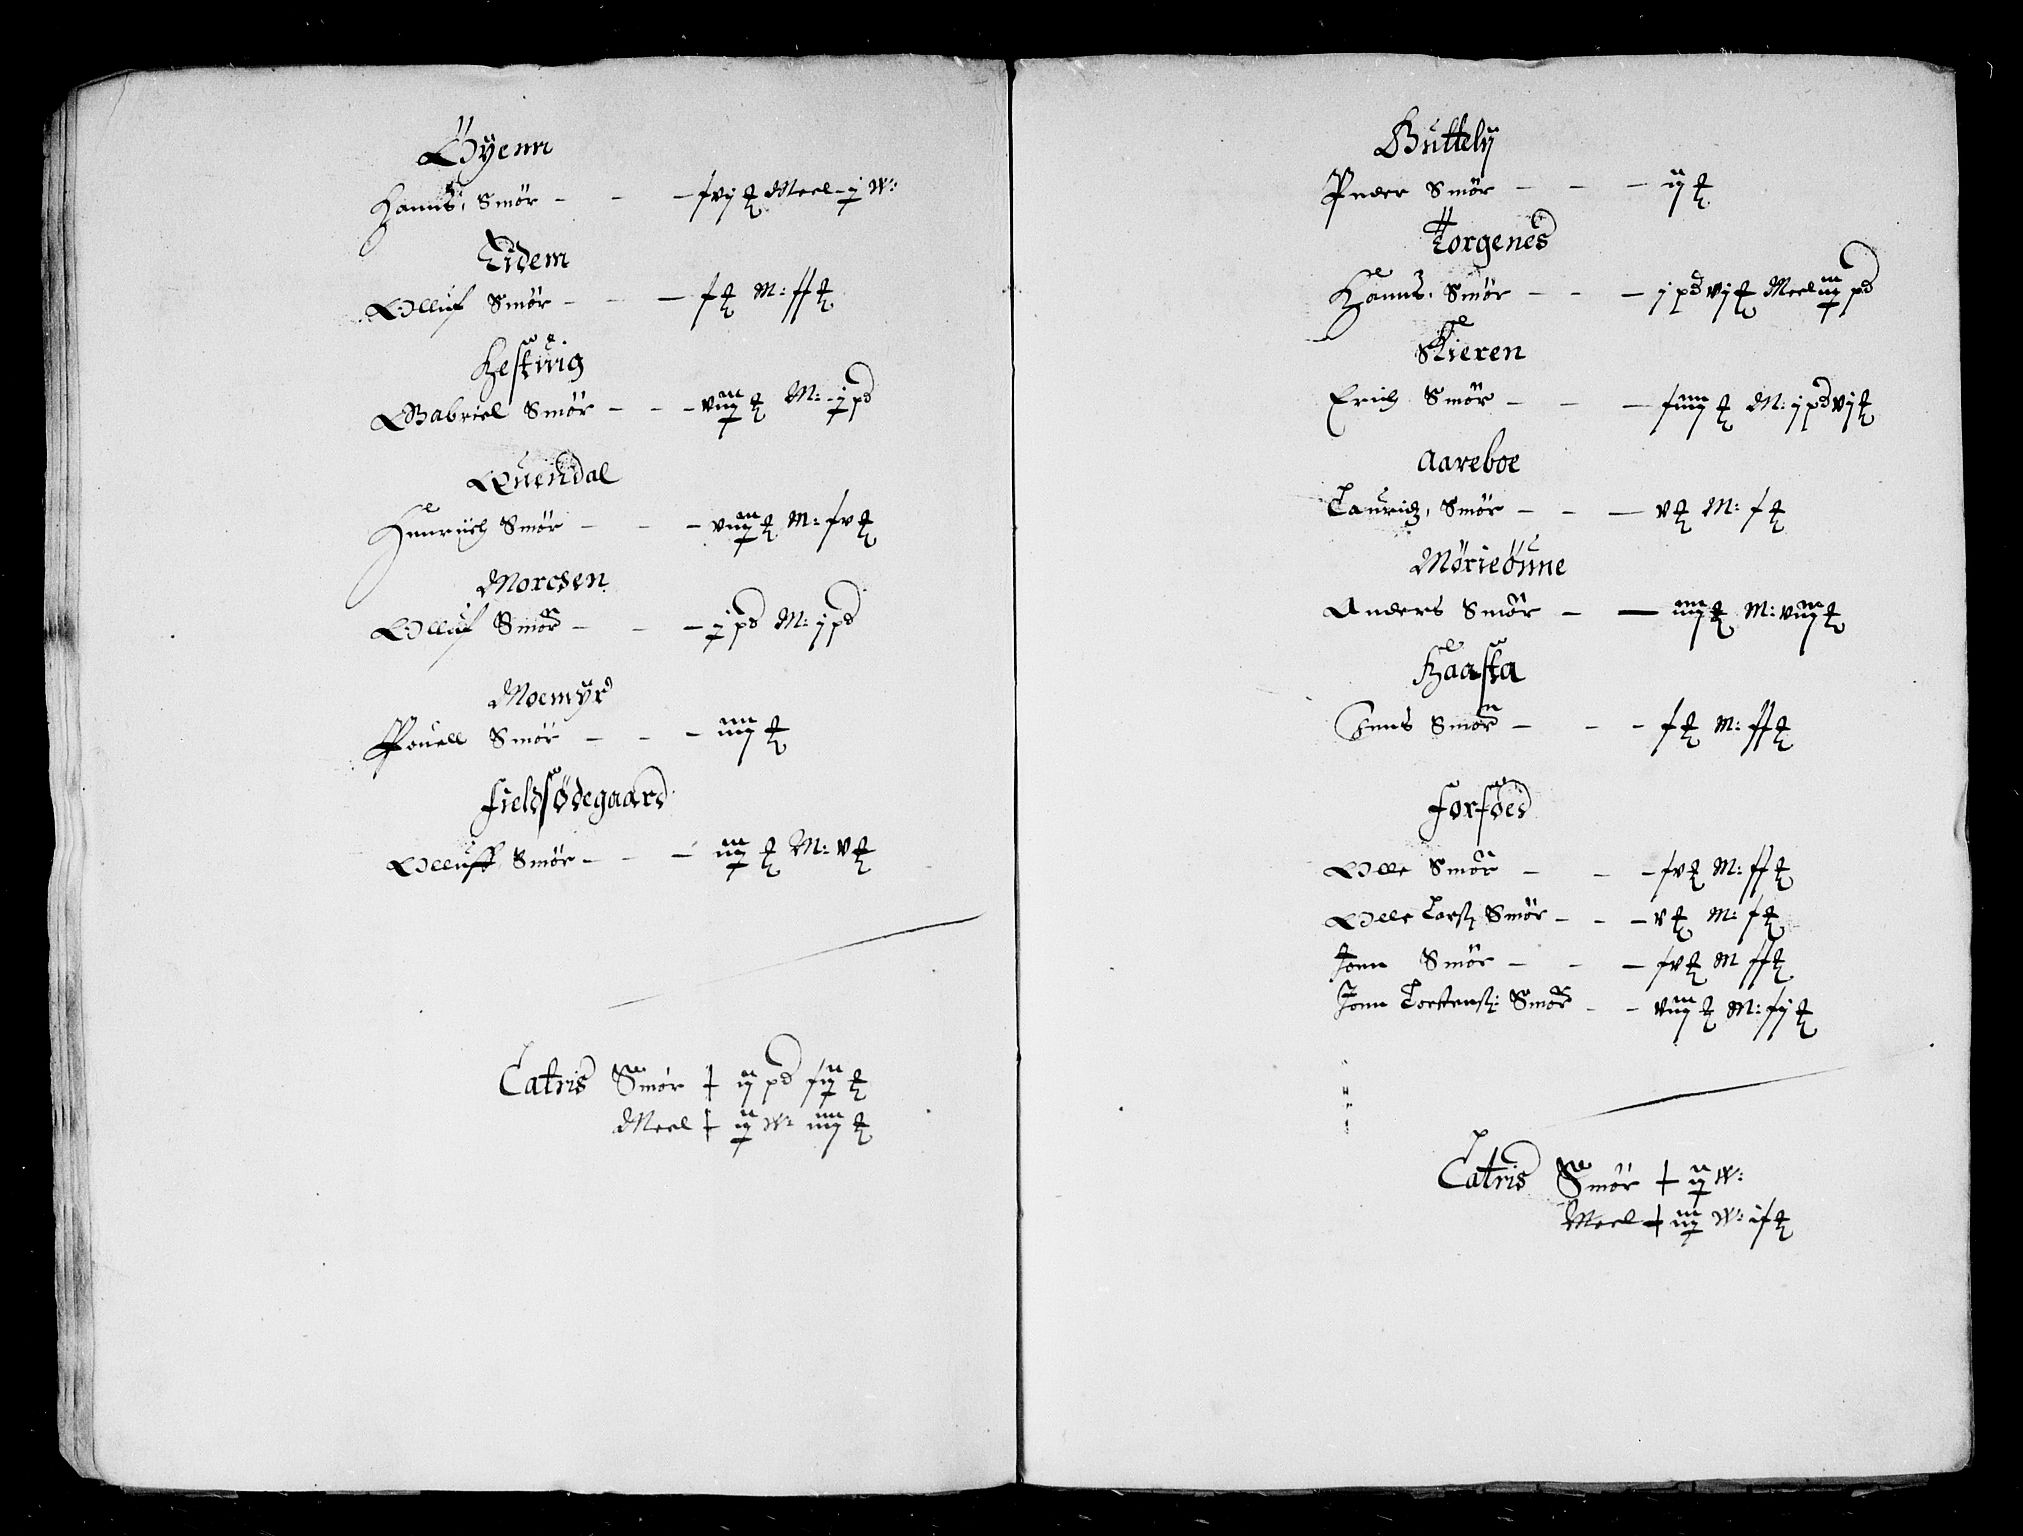 Øyenn
Hanns, Smör – – – xvj ℔ Meel – ÷j W:
Eidem
Olluf Smör – – – x ℔ M: xx ℔
Hestuig
Gabriel Smör – – – viij ℔ M: – ÷j pd
Quendal
Henrich Smör – – – viij ℔ M: xv ℔
Morcsen
Olluf Smör – – – ÷j pd M: j pd
Moemyr
Pouell Smör – – – iiij ℔
Fieldsødegaard
Olluff Smör – – – iij ℔ M: v ℔
Latris Smör ⸸ ij pd xij ℔
Meel ⸸ ij W: iiij ℔
Buttely
Peder Smör – – – ij ℔
Torgenes
Hanns, Smör – – – j pd vj ℔ Meel iij pd
Skieren
Erich Smör – – – xiiij ℔ M: j pd vj ℔
Aareboe
Lauridz, Smör – – – v ℔ M: x ℔
Mørieønne
Anders Smör – – iiij ℔ M: viij ℔
Haasta
Jens Smör – – – x ℔ M: xx ℔
Forsöed
Olle Smör – – – xv ℔ M: xx ℔
Olle Larsß Smör – – – v ℔ M: x ℔
Jonn Smör – – – xv ℔ M xx ℔
Jonn Torstensß: Smör – – vij ℔ M: xij ℔
Latris Smör ⸸ ij W:
Meel ⸸ iij W: ix ℔